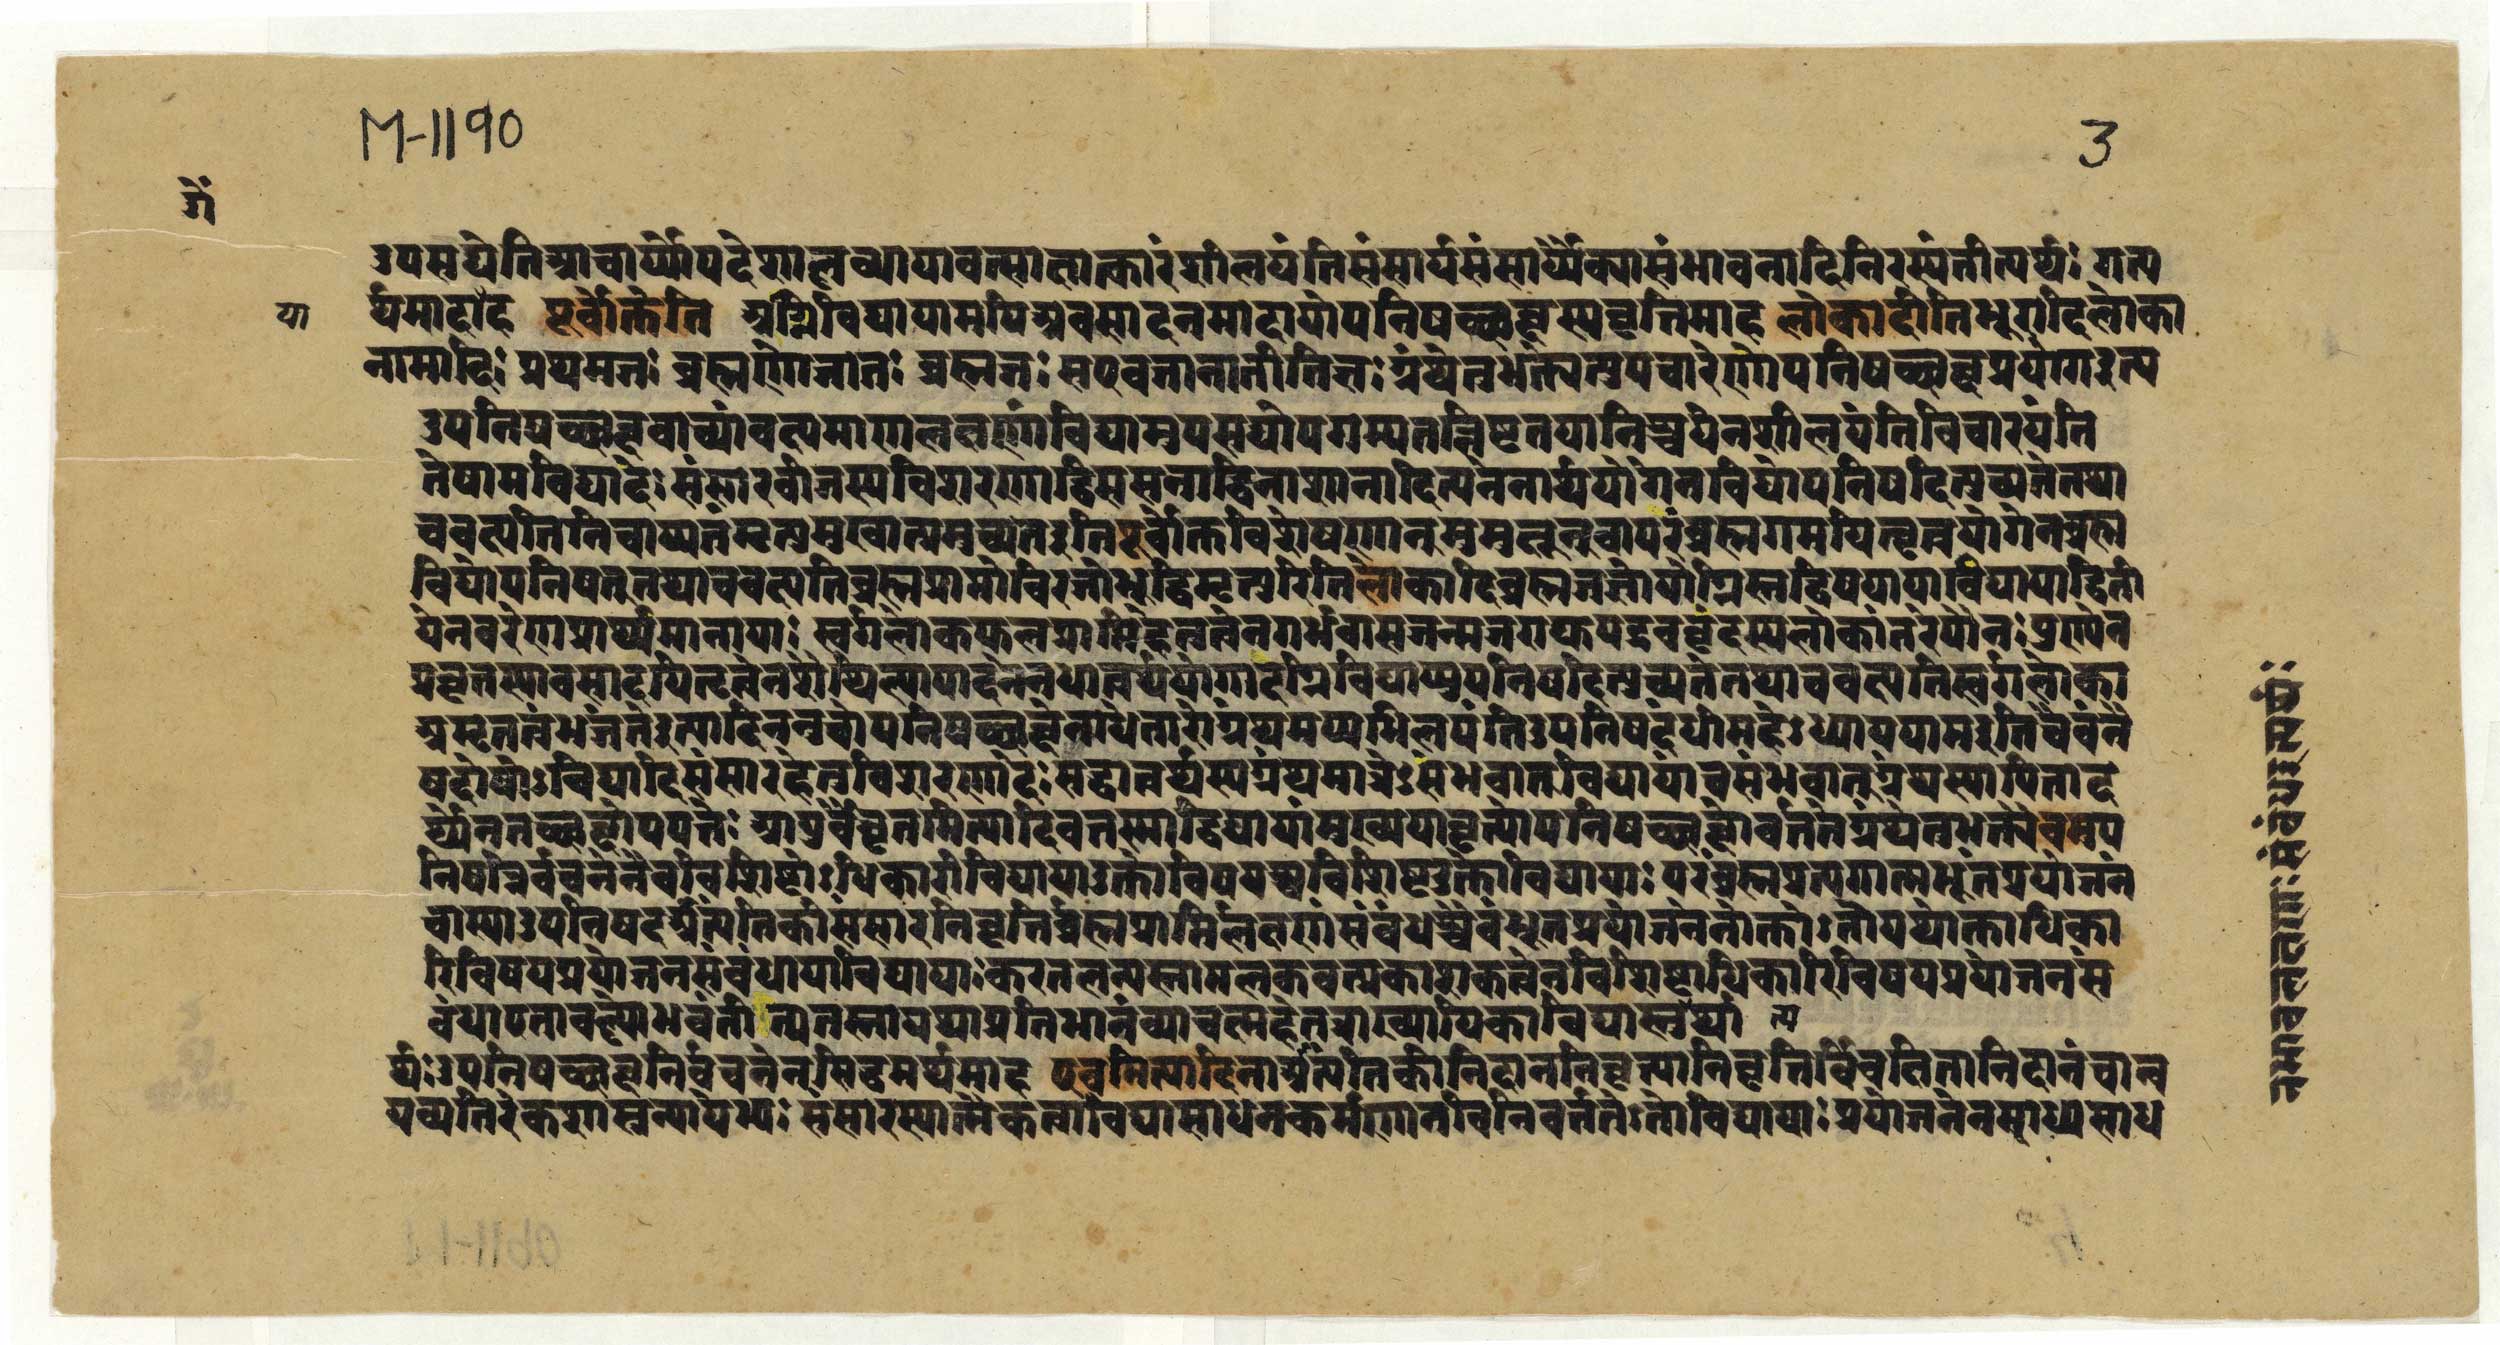 M-1190
3
गें
उपसद्येतिआचार्योपदेशाल्लब्ध्वायावत्साक्षात्कारंशीलयंतिसंसार्यसंसार्यैक्यासंभावनादिनिरस्यंतीत्यर्थः गत्य
या
र्थमादाह पूर्वोक्तेति अग्निविद्यायामपिअवसादनमादायोपनिषच्छब्दस्यवृत्तिमाह लोकादीतिभूरादिलोका
नामादिः प्रथमजः ब्रह्मणोजातः ब्रह्मजः सएवजानातीतिज्ञः ग्रंथेतुभक्त्येत्युपचारेणोपनिषच्छब्दप्रयोगइत्य
उपनिषच्छब्दवाच्यांवक्ष्यमाणलक्षणांविद्यामुपसद्योपगम्यतन्निष्ठतयानिश्चयेनशीलयंतिविचारयंति
तेषामविद्यादेः संसारबीजस्यविशरणाद्धिंसनाद्विनाशनादित्यनेनार्थयोगेनविद्योपनिषदित्युच्यतेतथा
चवक्ष्यतिनिचाय्यतंमृत्युमुखात्प्रमुच्यतइतिपूर्वोक्तविशेषणान्मुमुक्षून्वापरंब्रह्मगमयितृत्वयोगेनब्रह्म
विद्योपनिषत्तथाचवक्ष्यतिब्रह्मप्राप्तोविरजोभूद्विमृत्युरितिलोकादिब्रह्मजज्ञोयोग्निस्तद्विषयायाविद्यायाद्विती
येनवरेणप्रार्थ्यमानायाः स्वर्गलोकफलप्राप्तिहेतुत्वेनगर्भवासजन्मजराद्युपद्रववृंदस्यलोकांतरेपौनः पुण्येन
प्रवृत्तस्यावसादयितृत्वेनशैथिल्यापादनेनधात्वर्थयोगादग्निविद्याप्युपनिषदित्युच्यतेतथाचवक्ष्यतिस्वर्गलोका
अमृतत्वंभजंतइत्यादिननुचोपनिषच्छब्देनाध्येतारोग्रंथमप्यभिलपंतिउपनिषदंधीमहेऽध्यापयामइतिचैवंनै
षदोषोऽविद्यादिसंसारहेतुविशरणादेः सदिधात्वर्थस्यग्रंथमात्रेऽसंभवात्विद्यायांचसंभवात्ग्रंथस्यापिताद
र्थ्येनतच्छब्दोपपत्तेः आयुर्वैघृतमित्यादिवत्तस्माद्विद्यायांमुख्ययावृत्त्योपनिषच्छब्दोवर्ततेग्रंथेतुभक्त्यैवमुप
निषन्निर्वचनेनैवविशिष्टोऽधिकारीविद्यायाउक्तोविषयश्चविशिष्टउक्तोविद्यायाः परंब्रह्मप्रत्यगात्मभूतंप्रयोजनं
चास्याउपनिषदआत्यंतिकीसंसारनिवृत्तिर्ब्रह्मप्राप्तिलक्षणासंबंधश्चैवंभूतप्रयोजनेनोक्तोऽतोयथोक्ताधिका
रिविषयप्रयोजनसंबंधायाविद्यायाः करतलन्यस्तामलकवत्प्रकाशकत्वेनविशिष्टाधिकारिविषयप्रयोजनसं
बंधाएतावल्ल्योभवंतीत्यतस्तायथाप्रतिभानंव्याचक्ष्महेतत्राख्यायिकाविद्यास्तुत्यर्था त्य
र्थः उपनिषच्छब्दनिर्वचनेनसिद्धमर्थमाह एवमित्यादिनाआत्यंतिकीनिदाननिवृत्त्यानिवृत्तिर्विवक्षितानिदानंचान्व
यव्यतिरेकशास्त्रन्यायेभ्यः संसारस्यात्मैकत्वाविद्यासाधनकर्मणानविनिवर्ततेऽतोविद्यायाः प्रयोजनेनसाध्यसाध